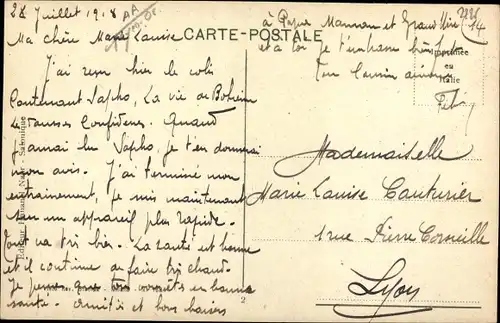 28 Juillet 1918
Ma chère Marie Louise
J'ai reçu hier le colis
Contenant Sapho, La vie de Bohème
Les Fausses Confidences. Quand
J'aurai lu Sapho, je t'en donnerai
mon avis. J'ai terminé mon
entrainement, je suis maintenant
sur un appareil plus rapide.
Tout va très bien. La santé est bonne
et il continue de faire très chaud.
Je pense que tous vous êtes en bonne
santé. Amitiés et bons baisers
à Papa Maman et Grand Mère
et à toi Je t'embrasse
Ton Cousin
CARTE-POSTALE
Imprimée
en
Italie
Mademoiselle
Marie Louise Couturier
1 rue Pierre Corneille
Lyon
Editeur Hananel Naar, Salonique
2